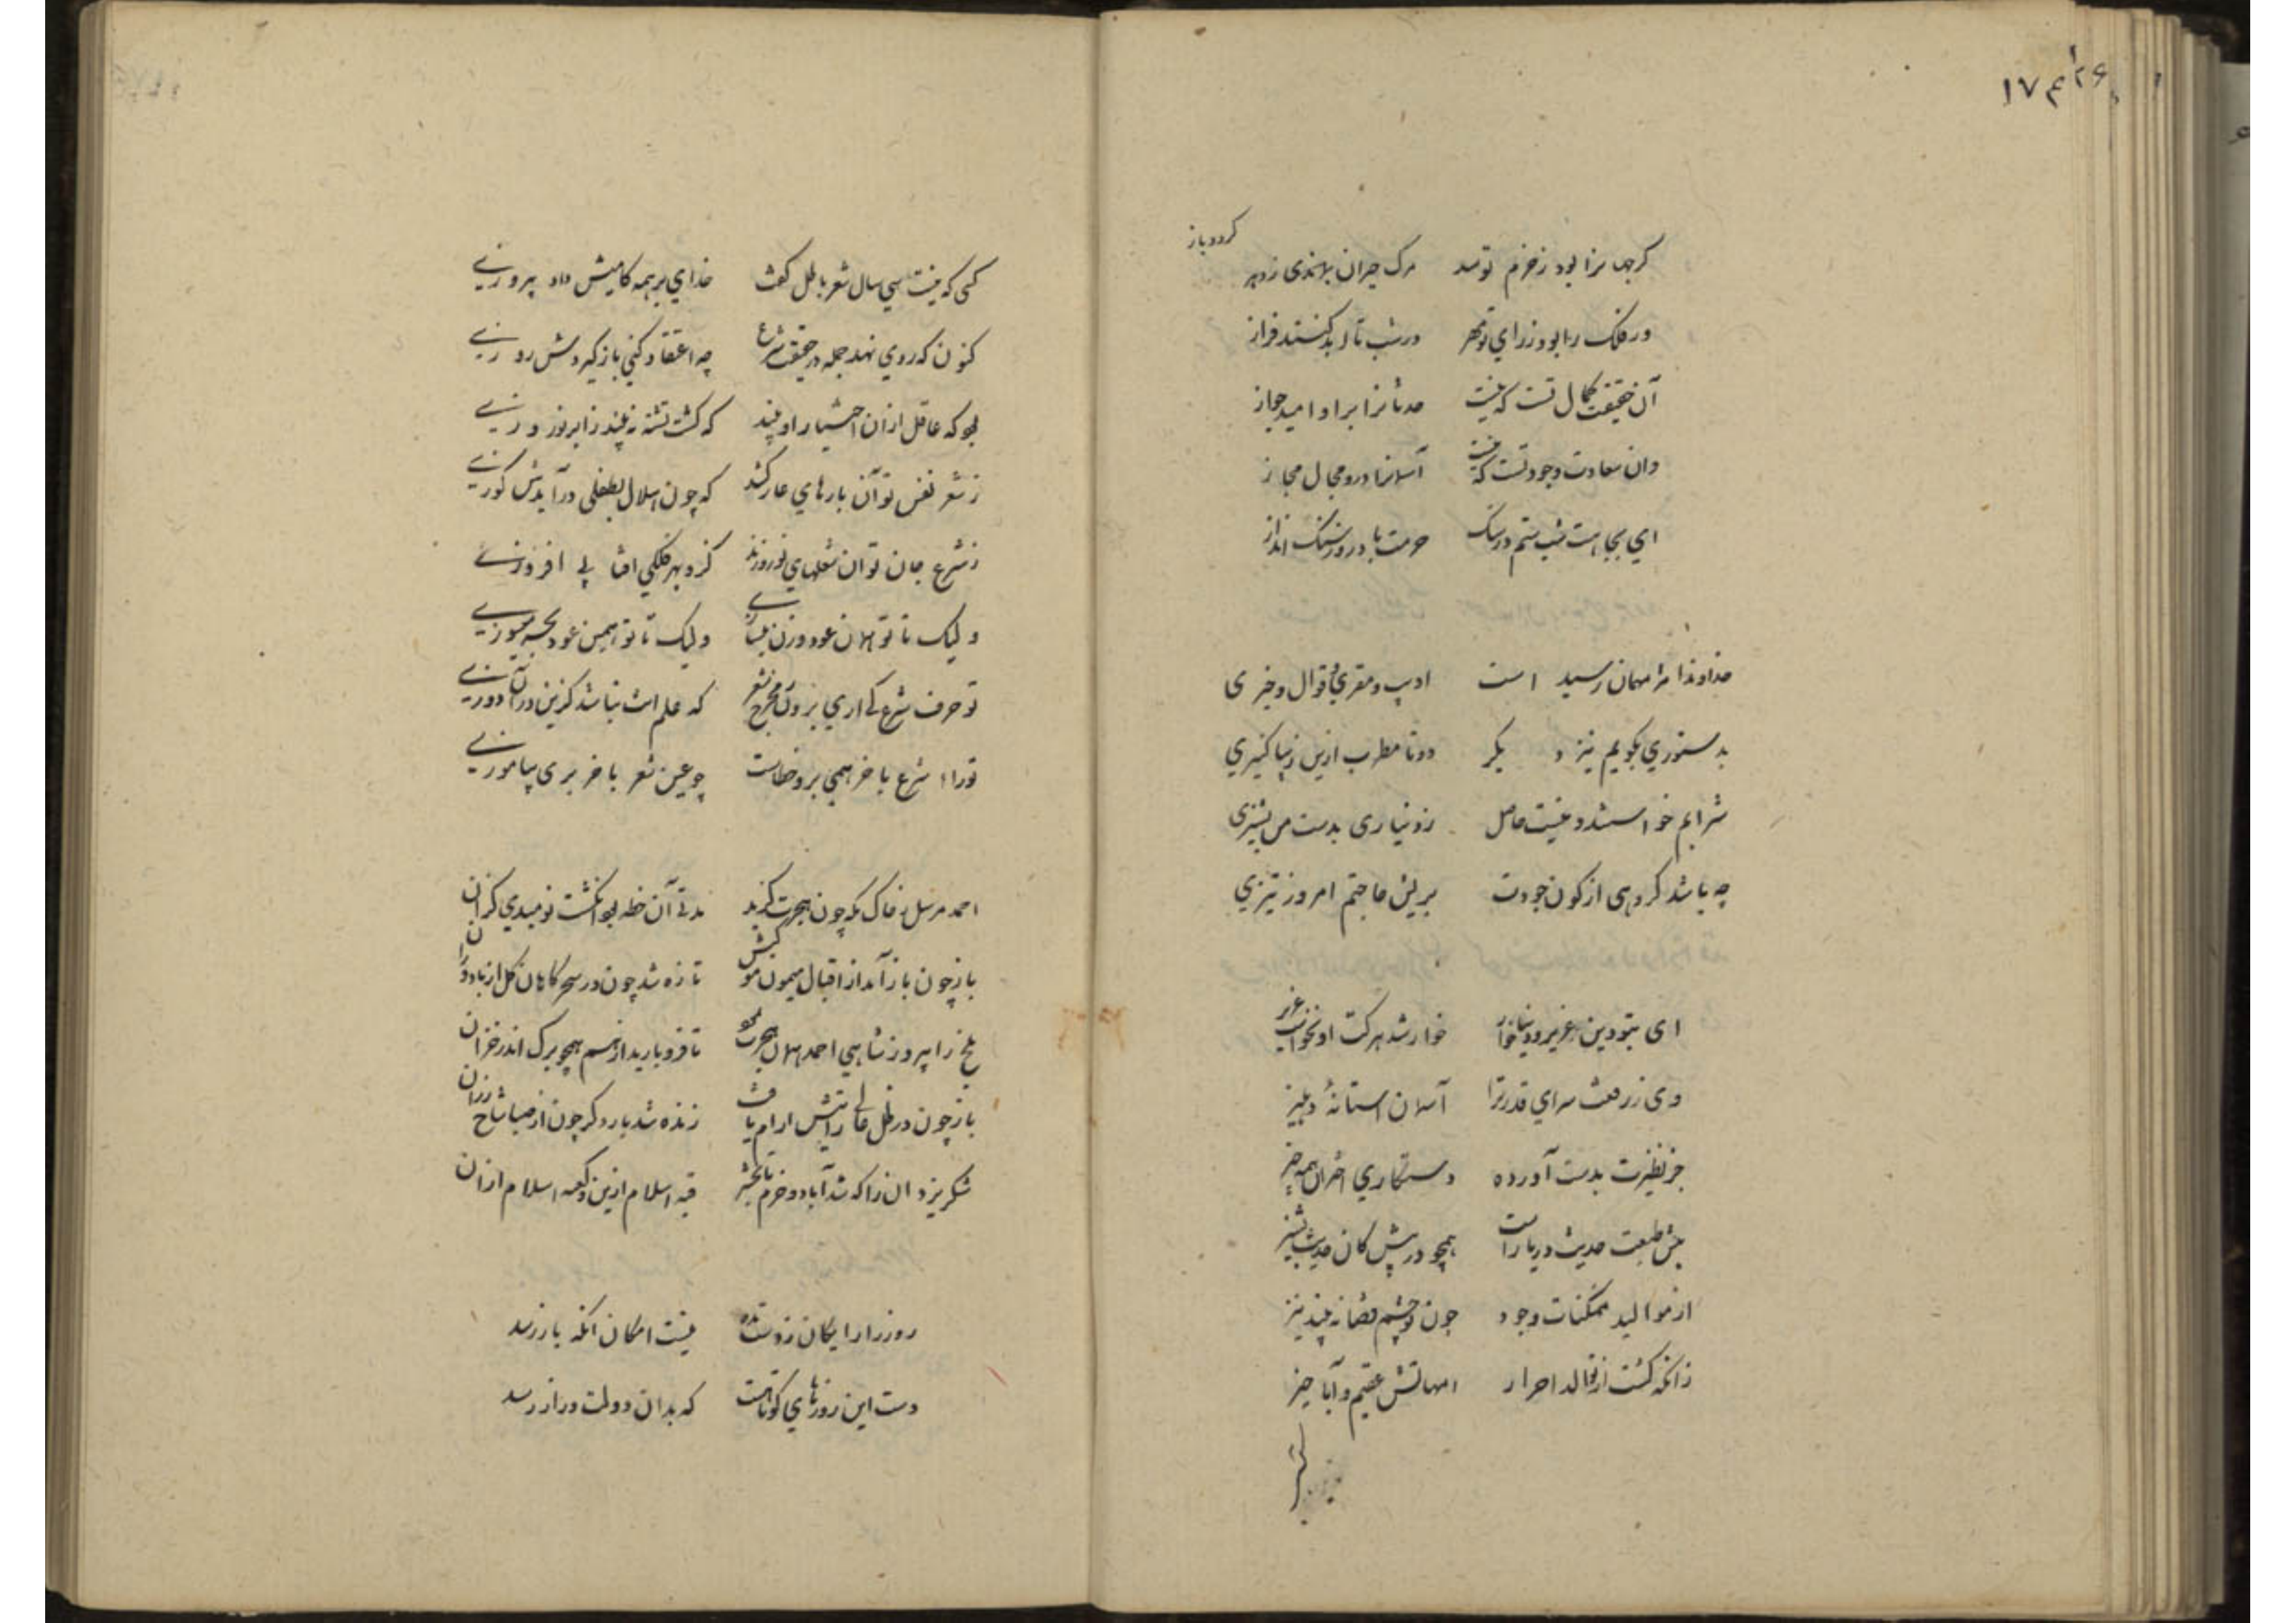 ۱۷۴ ۲۶
گردد باز
کر جهانرا بود زخزم تو سد مرک حیران بماندی زدر
ور فلک را بود ز رای تو مهر در شب تا ابد کنند فراز
آن حقیقت کمال تست که نیست حدثانرا برو امید جواز
وان سعادت وجود تست که نیست آسمانرا درو مجال مجاز
ای بجاهت شب ستم در سنک حرمت با در روز سنک انداز
خداوندا مرا مهمان رسید است ادیب و مقری و قوال و چیزی
بدستوری بگویم نیز دیگر دو تا مطرب ازین زیبا کنیزی
شرابم خواستند و نیست حاصل زدنیاری بدست من پشیزی
چه باشد کر دهی از کون جودت بریش حاجتم امروز تیزی
ای بتو دین عزیز و دنیا خوار خوار شد هرکت او نخواست عزیز
وی ز رفعت سرای قدر ترا آسمان استانه دهلیز
جز نظیرت بدست آورده دستکاری اختران همه چیز
پیش طبعت حدیث دریا راست همچو در پیش کان حدیث پشیز
از موالید ممکنات وجود چون تو چشم قضا نه بیند نیز
زانکه کشت از توالد احرار امهاتش عقیم و آبا حیز
کسی که مدت سی سال شعر باطل گفت خدای برهمه کامیش داد پیروزی
کنون که روی نهد جمله در حقیقت شرع چه اعتقاد کنی باز گیردش روزی
بود که عاقل از ان احتشیار او بیند که کشت تشنه نه بیند ز ابر نوروزی
ز شعر نفس تو آن بارهای عار کشد که چون اسلال بطفلی در آیدش کوزی
ز شرع جان تو آن شعلهای نور زند کزو بهر فلکی افتابی افروزی
ولیک تا تو همان عود وزن میسازی ولیک تا تو همین عود نحسه میسوزی
تو حرف شرع گذاری برون مخرج شعر که علم اش نباشد کزین در آن دوزی
تو را شرع باخر همی برون خطاست چو عین شعر باخر بری بیاموزی
احمد مرسل ز خاک مکه چون هجرت گزید مدتی آن خطه بود انکشت نومیدی کزان
باز چون باز آمد از اقبال میمون موکبش تازه شد چون در سحرگاهان گل از باد وزان
بلخ را پیروز شاهی احمد همان هجرت نمود تا فرو بارید از هم همچو برک اندر خزان
باز چون در ظل عالی رایتش ارام یافت زنده شد بار دکر چون از صبا شاخ رزان
شکر یزدان را که شد آباد و خرم تا بحشر قبه اسلام ازین و کعبه اسلام ازان
روز را رایکان ز دست مده نیست امکان انکه باز رسد
دست این روزهای کوتاهست که بدان دولت دراز رسد